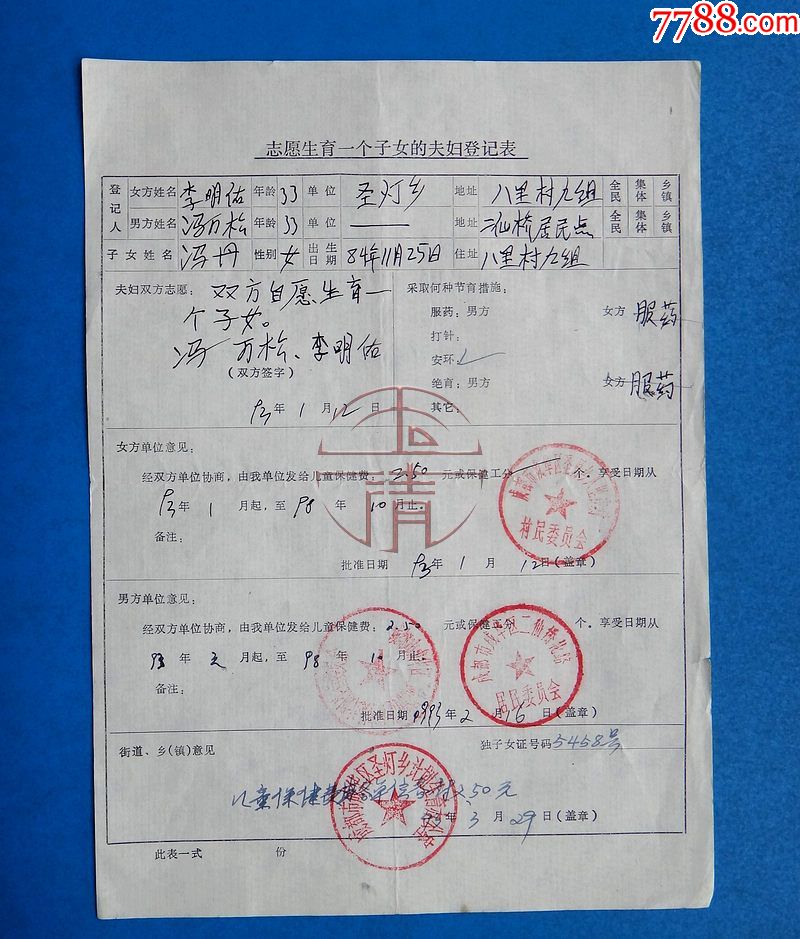 7788.com
志愿生育一个子女的夫妇登记表
登记人 女方姓名 李明佑 年龄 33 单位 圣灯乡 地址 八里村九组 全民 集体 乡镇
男方姓名 冯万松 年龄 33 单位 — 地址 汕桥居民点 全民 集体 乡镇
子女姓名 冯丹 性别 女 出生日期 84年11月25日 住址 八里村九组
夫妇双方志愿: 双方自愿生育一个子女。
冯万松、李明佑
(双方签字)
93年1月12日
采取何种节育措施:
服药:男方 女方 服药
打针:
安环 ✓
绝育:男方 女方 服药
其它:
女方单位意见:
经双方单位协商,由我单位发给儿童保健费:2.50 元或保健工分 个。享受日期从
93年1月起,至98年10月止。
备注:
批准日期 93年1月12日(盖章)
村民委员会
男方单位意见:
经双方单位协商,由我单位发给儿童保健费:2.50 元或保健工分 个。享受日期从
93年元月起,至98年10月止。
备注:
批准日期 1993年2月16日(盖章)
成都市成华区二仙桥北路
居民委员会
街道、乡(镇)意见 独子女证号码 5458号
儿童保健费 2.50元
93年3月29日(盖章)
此表一式 份